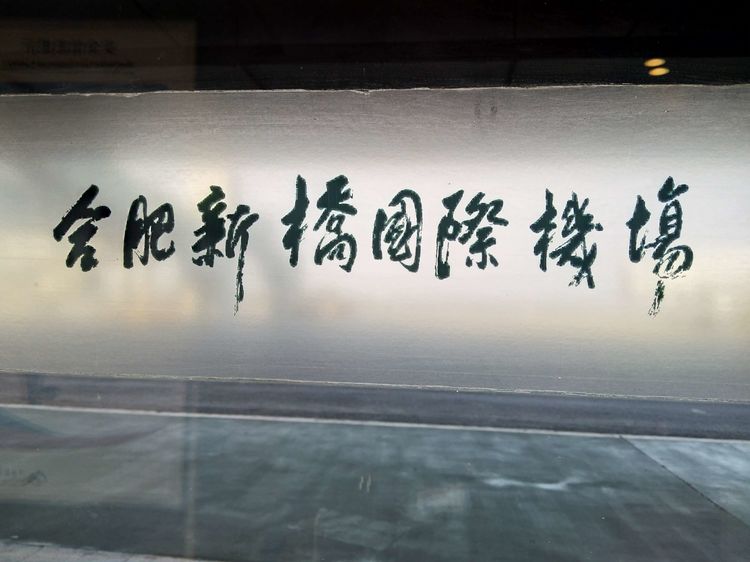 合肥新橋國際機場